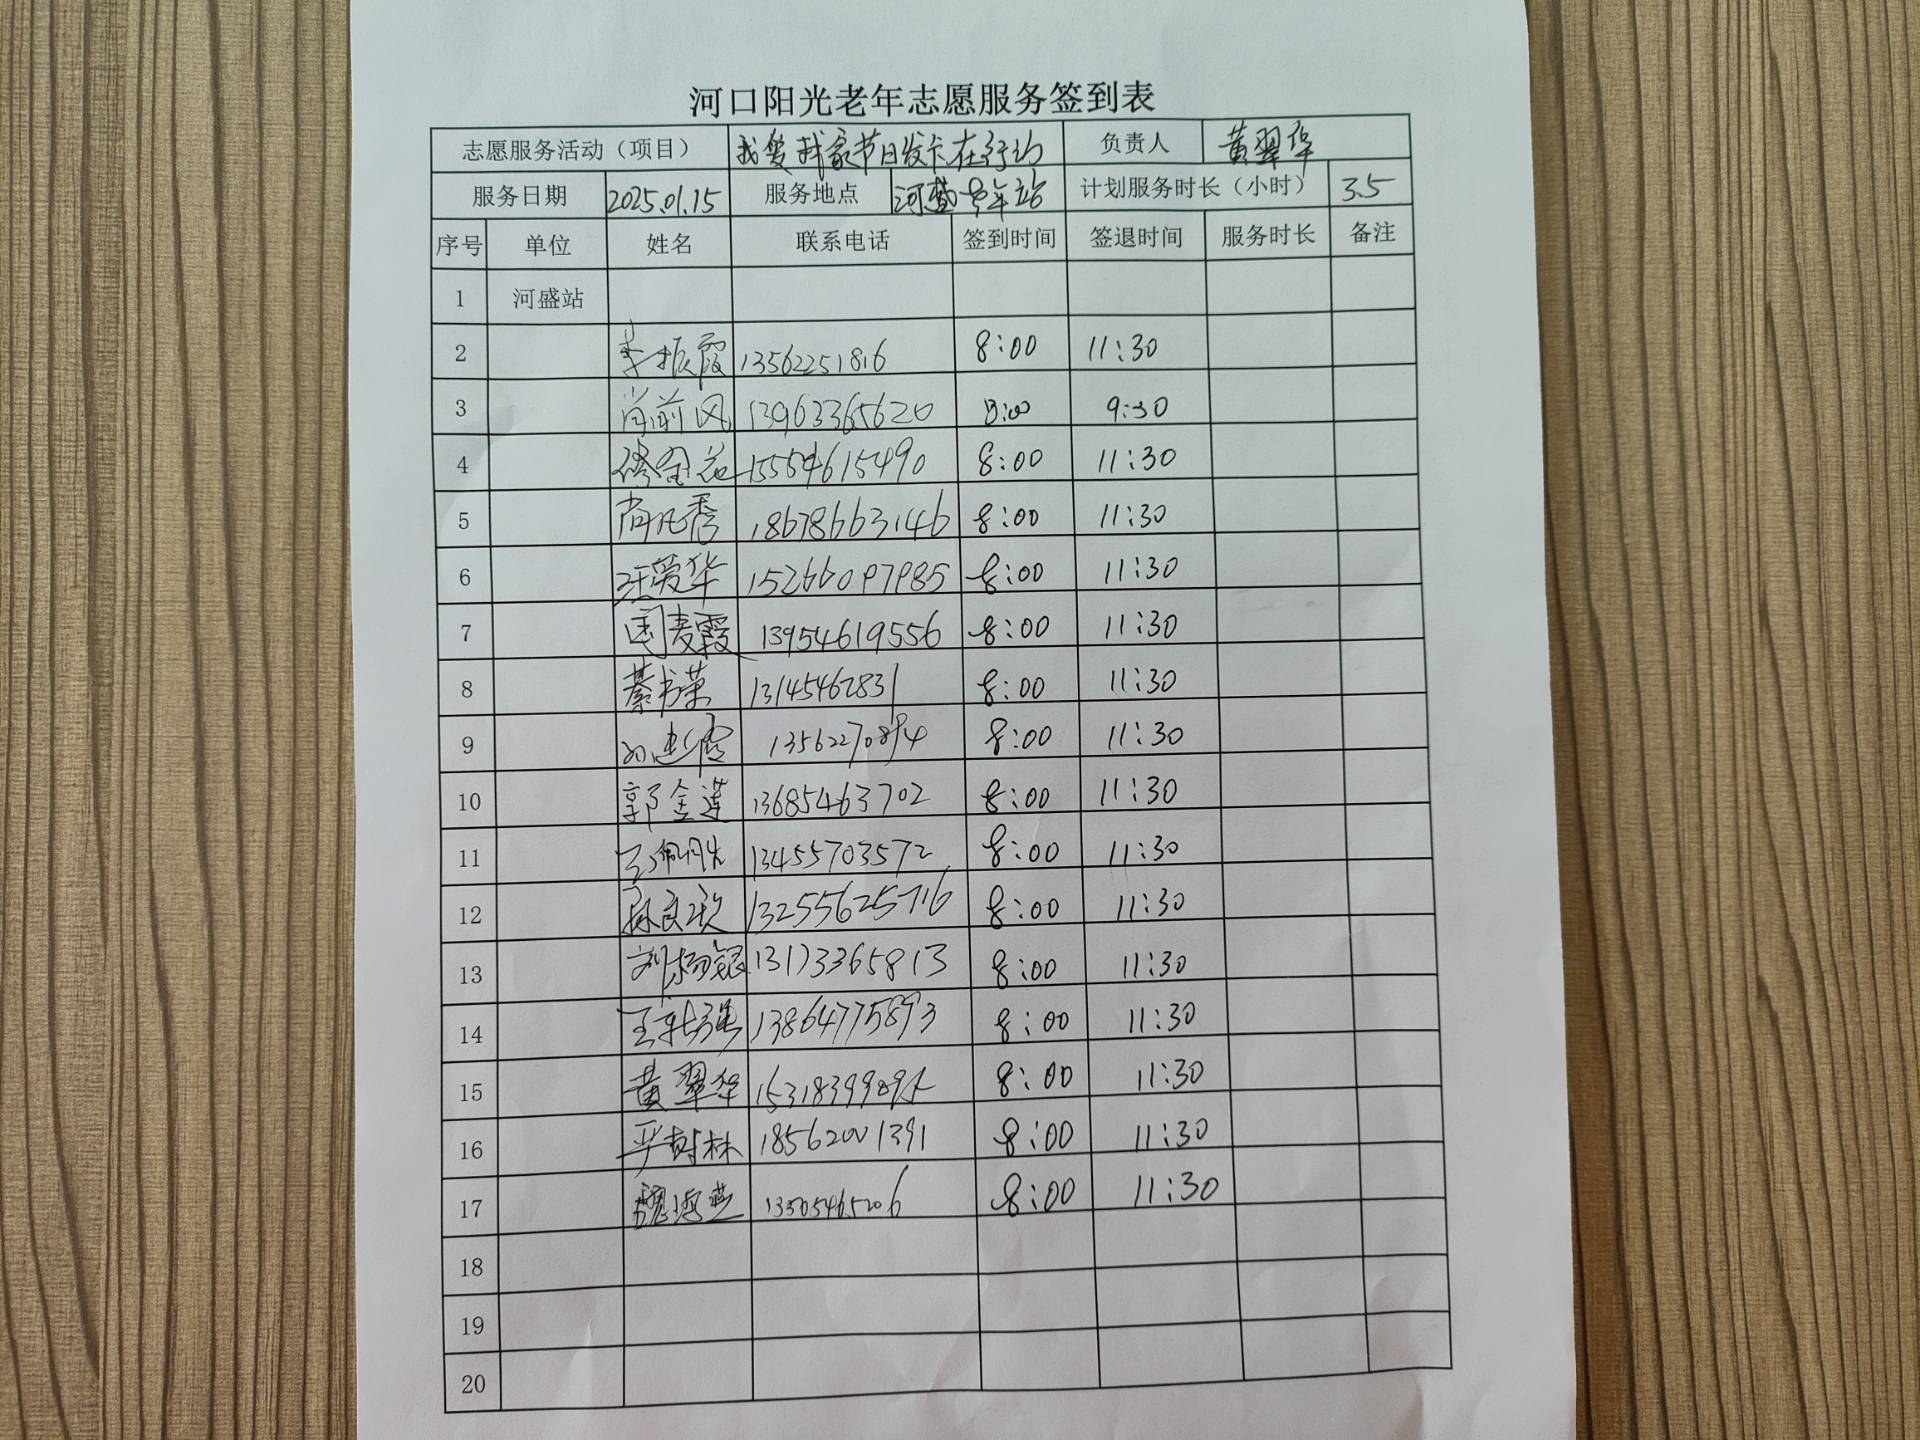 河口阳光老年志愿服务签到表
志愿服务活动（项目） 我爱我家节日发卡在行动 负责人 黄翠华
服务日期 2025.01.15 服务地点 河盛老年站 计划服务时长（小时） 3.5
序号 单位 姓名 联系电话 签到时间 签退时间 服务时长 备注
1 河盛站
2 李振霞 13562251816 8:00 11:30
3 尚前风 13963365620 8:00 9:30
4 15554615490 8:00 11:30
5 尚凡秀 18678663146 8:00 11:30
6 汪爱华 15266097985 8:00 11:30
7 国麦霞 13954619556 8:00 11:30
8 綦书荣 13145462831 8:00 11:30
9 8:00 11:30
10 郭金莲 13685463702 8:00 11:30
11 13455703572 8:00 11:30
12 13255625716 8:00 11:30
13 13173365813 8:00 11:30
14 13864775893 8:00 11:30
15 黄翠华 8:00 11:30
16 严树林 18562001391 8:00 11:30
17 8:00 11:30
18
19
20